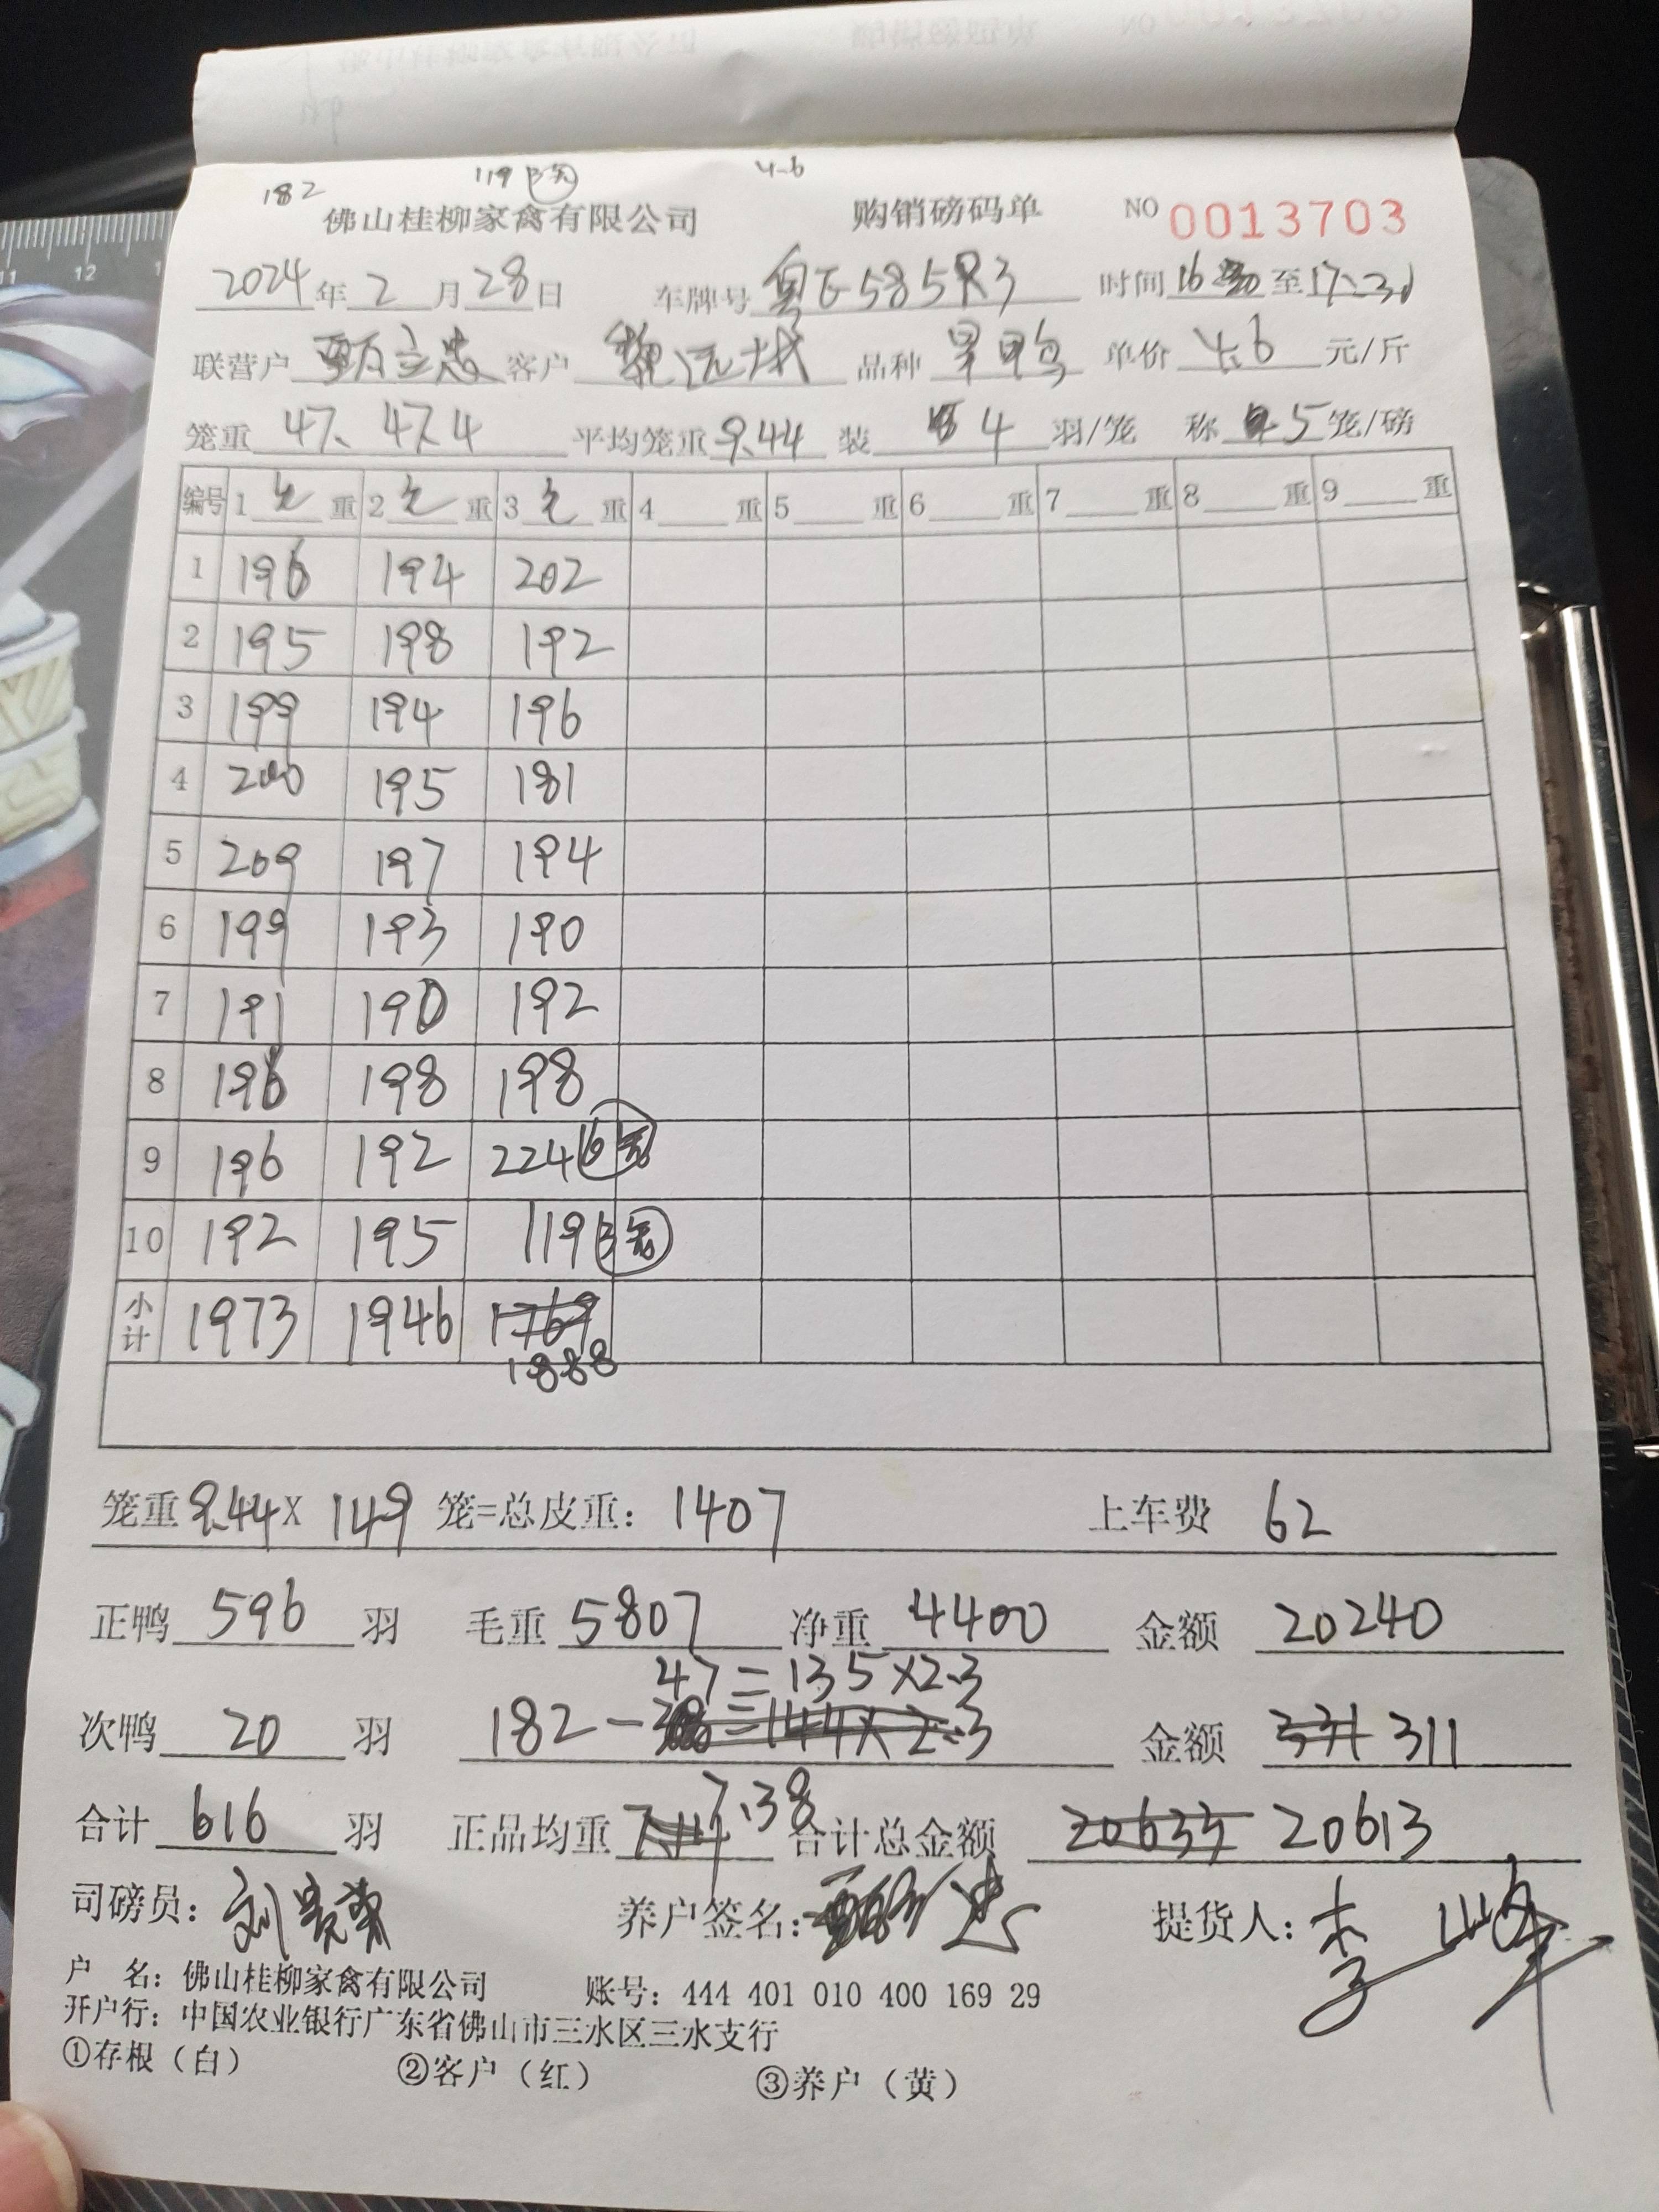 182 119 3笼 4.6
佛山桂柳家禽有限公司 购销磅码单 NO 0013703
2024年2月28日 车牌号 粤E585R3 时间 16 至17:30
联营户 甄立忠 客户 品种 旱鸭 单价 4.6 元/斤
笼重 47. 47.4 平均笼重 9.44 装 4 羽/笼 称 5 笼/磅
编号 1 毛 重 2 毛 重 3 毛 重 4 重 5 重 6 重 7 重 8 重 9 重
1 196 194 202
2 195 198 192
3 199 194 196
4 200 195 181
5 209 197 194
6 199 193 190
7 191 190 192
8 196 198 198
9 196 192 224 6笼
10 192 195 119 3笼
小计 1973 1946 1769
1888
笼重 9.44 X 149 笼=总皮重: 1407 上车费 62
正鸭 596 羽 毛重 5807 净重 4400 金额 20240
47=135×2.3
次鸭 20 羽 182-38=144×2.3 金额 331 311
合计 616 羽 正品均重 7.38 合计总金额 20633 20613
司磅员: 养户签名: 提货人: 李峰
户 名: 佛山桂柳家禽有限公司 账号: 444 401 010 400 169 29
开户行: 中国农业银行广东省佛山市三水区三水支行
①存根（白） ②客户（红） ③养户（黄）